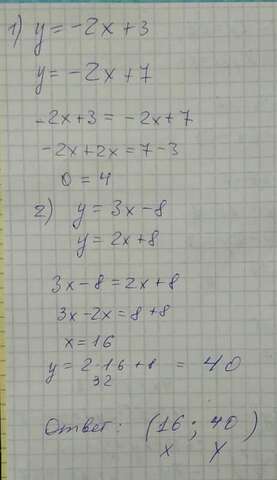 1) y = -2x + 3
y = -2x + 7
-2x + 3 = -2x + 7
-2x + 2x = 7 - 3
0 = 4
2) y = 3x - 8
y = 2x + 8
3x - 8 = 2x + 8
3x - 2x = 8 + 8
x = 16
y = 2·16 + 8 = 40
32
Ответ: (16; 40)
x y